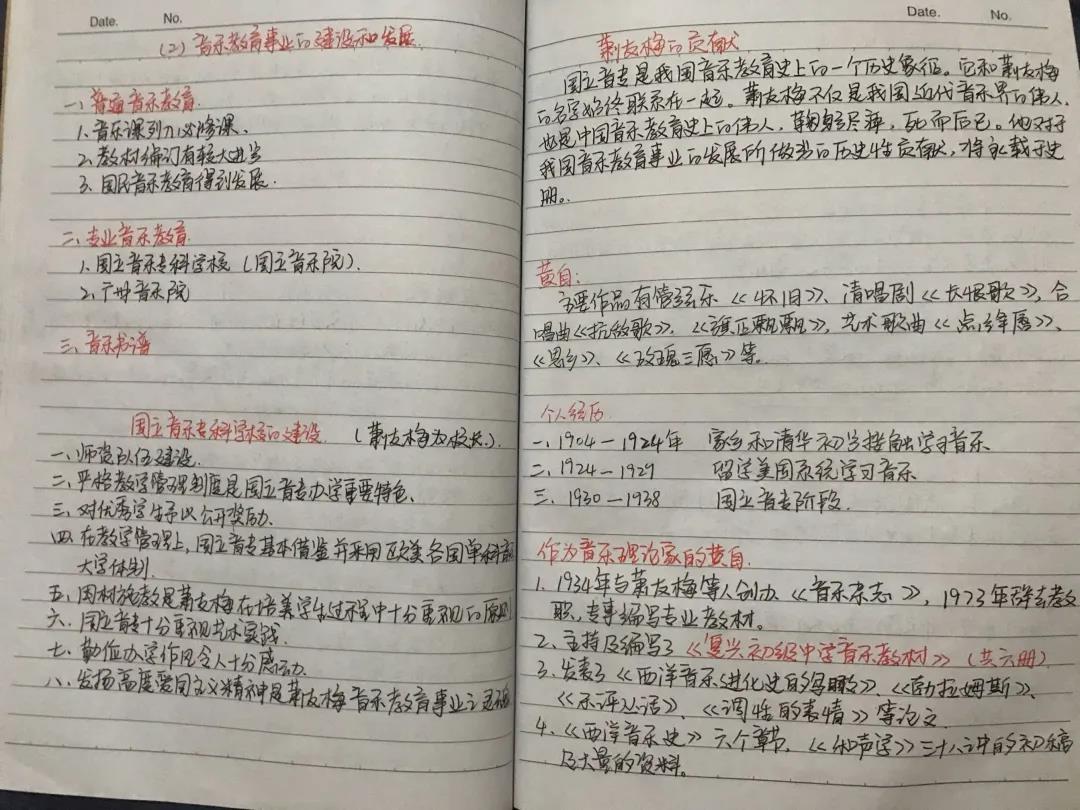 Date. No.
(2) 音乐教育事业的建设和发展
一、普通音乐教育
1.音乐课列为必修课.
2.教材编订有较大进步
3.国民音乐教育得到发展.
二、专业音乐教育.
1.国立音乐专科学校(国立音乐院).
2.广州音乐院
三、音乐书谱
国立音乐专科学校的建设. (萧友梅为校长.).
一、师资队伍建设.
二、严格教学管理制度是国立音专办学重要特色.
三、对优秀学生予以公开奖励.
四、在教学管理上,国立音专基本借鉴并采用欧美各国单科音
大学体制.
五、因材施教是萧友梅在培养学生过程中十分重视的原则
六、国立音专十分重视艺术实践.
七、勤俭办学作风令人十分感动.
八、发扬高度爱国主义精神是萧友梅音乐教育事业之
Date. No.
萧友梅的贡献
国立音专是我国音乐教育史上的一个历史象征。它和萧友梅
的名字始终联系在一起。萧友梅不仅是我国近代音乐界的伟人,
也是中国音乐教育史上的伟人,鞠躬尽瘁,死而后已。他对于
我国音乐教育事业的发展所做出的历史性贡献,将永载于史
册。
黄自:
主要作品有管弦乐《怀旧》、清唱剧《长恨歌》,合
唱曲《抗敌歌》,《旗正飘飘》,艺术歌曲《点绛唇》、
《思乡》、《玫瑰三愿》等.
个人经历.
一、1904—1924年 家乡和清华初学接触学习音乐
二、1924—1929 留学美国系统学习音乐
三、1930—1938 国立音专阶段.
作为音乐理论家的黄自.
1. 1934年与萧友梅等人创办《音乐杂志》,1973年辞去教
职,专事编写专业教材.
2.主持及编写了《复兴初级中学音乐教材》(共六册)
3.发表了《西洋音乐进化史的鸟瞰》、《勃拉姆斯》、
《乐评丛话》、《调性的表情》等论文.
4.《西洋音乐史》六个章节,《和声学》三十八讲的初稿
及大量的资料。